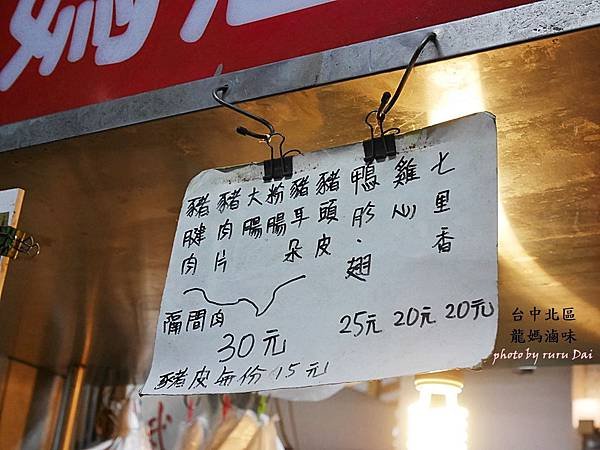 媽
七里香
雞心
鴨肫.翅
豬頭皮
豬耳朵
粉腸
大腸
豬肉片
豬腱肉
隔間肉
30元
25元 20元 20元
豬皮每份15元
台中北區
龍媽滷味
photo by ruru Dai